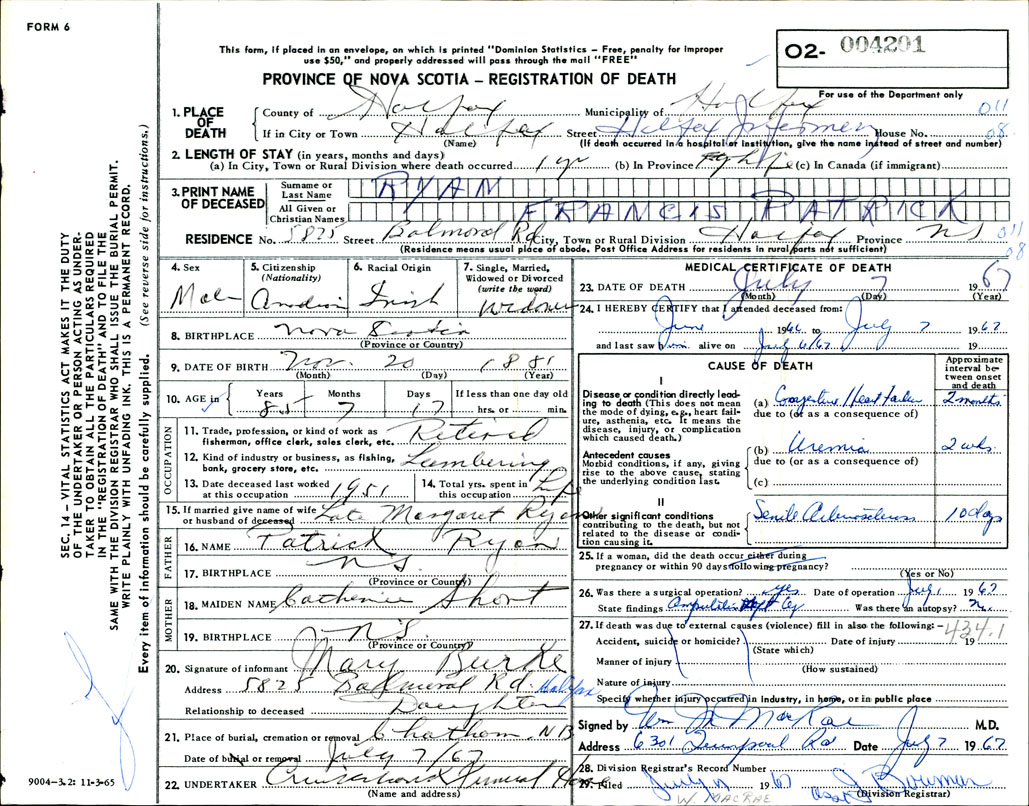 FORM 6
This form, if placed in an envelope, on which is printed "Dominion Statistics – Free, penalty for improper
use $50," and properly addressed will pass through the mail "FREE"
PROVINCE OF NOVA SCOTIA – REGISTRATION OF DEATH
O2- 004201
For use of the Department only
1. PLACE OF DEATH
County of Halifax Municipality of Halifax 011
If in City or Town Halifax Street Halifax Infirmary House No. 08
(Name) (If death occurred in a hospital or institution, give the name instead of street and number)
2. LENGTH OF STAY (in years, months and days)
(a) In City, Town or Rural Division where death occurred 1 yr (b) In Province life (c) In Canada (if immigrant)
3. PRINT NAME OF DECEASED
Surname or Last Name RYAN
All Given or Christian Names FRANCIS PATRICK
RESIDENCE No. 5825 Street Balmoral Rd City, Town or Rural Division Halifax Province NS 011
08
(Residence means usual place of abode. Post Office Address for residents in rural parts not sufficient)
4. Sex Male
5. Citizenship (Nationality) Canadian
6. Racial Origin Irish
7. Single, Married, Widowed or Divorced (write the word) Widower
8. BIRTHPLACE Nova Scotia
(Province or Country)
9. DATE OF BIRTH Nov. 20 1881
(Month) (Day) (Year)
10. AGE in Years 85 Months 7 Days 17 If less than one day old hrs. or min.
OCCUPATION
11. Trade, profession, or kind of work as fisherman, office clerk, sales clerk, etc. Retired
12. Kind of industry or business, as fishing, bank, grocery store, etc. Lumbering
13. Date deceased last worked at this occupation 1951
14. Total yrs. spent in this occupation Life
15. If married give name of wife or husband of deceased Late Margaret Ryan
FATHER
16. NAME Patrick Ryan
17. BIRTHPLACE NS
(Province or Country)
MOTHER
18. MAIDEN NAME Catherine Short
19. BIRTHPLACE NS.
(Province or Country)
20. Signature of informant Mary Burke
Address 5825 Balmoral Rd. Halifax
Relationship to deceased Daughter
21. Place of burial, cremation or removal Chatham, NB
Date of burial or removal July 7/67
22. UNDERTAKER Funeral Home
(Name and address)
MEDICAL CERTIFICATE OF DEATH
23. DATE OF DEATH July 7 1967
(Month) (Day) (Year)
24. I HEREBY CERTIFY that I attended deceased from:
June 1966 to July 7 1967
and last saw him alive on July 6/67 19
CAUSE OF DEATH
Approximate interval between onset and death
I
Disease or condition directly leading to death (This does not mean the mode of dying, e.g., heart failure, asthenia, etc. It means the disease, injury, or complication which caused death.)
(a) Congestive Heart Failure 2 months
due to (or as a consequence of)
Antecedent causes
Morbid conditions, if any, giving rise to the above cause, stating the underlying condition last.
(b) Uremia 2 wks
due to (or as a consequence of)
(c)
II
Other significant conditions
contributing to the death, but not related to the disease or condition causing it.
Senile 10 days
25. If a woman, did the death occur either during pregnancy or within 90 days following pregnancy?
(Yes or No)
26. Was there a surgical operation? yes Date of operation July 1 1967
State findings Amputation left leg Was there an autopsy? No
27. If death was due to external causes (violence) fill in also the following:– 434.1
Accident, suicide or homicide? Date of injury 19
(State which)
Manner of injury
(How sustained)
Nature of injury
Specify whether injury occurred in industry, in home, or in public place
Signed by Wm MacRae M.D.
Address 6301 Quinpool Rd Date July 7 1967
28. Division Registrar's Record Number
29. Filed July 1967 Bowman
(Division Registrar)
W. MACRAE
SEC. 14 – VITAL STATISTICS ACT MAKES IT THE DUTY
OF THE UNDERTAKER OR PERSON ACTING AS UNDER-
TAKER TO OBTAIN ALL THE PARTICULARS REQUIRED
IN THE "REGISTRATION OF DEATH" AND TO FILE THE
SAME WITH THE DIVISION REGISTRAR WHO SHALL ISSUE THE BURIAL PERMIT.
WRITE PLAINLY WITH UNFADING INK. THIS IS A PERMANENT RECORD.
Every item of information should be carefully supplied. (See reverse side for instructions.)
9004-3.2: 11-3-65